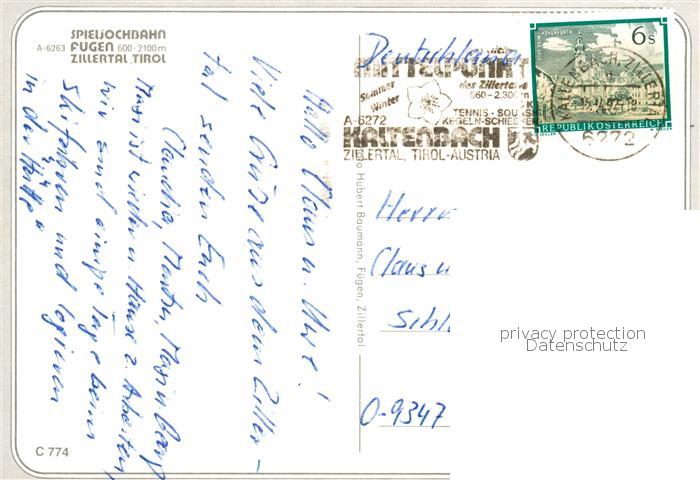 SPIELJOCHBAHN
A-6263 FÜGEN 600-2100m
ZILLERTAL, TIROL
Hallo Claus u. Uwe!
Viele Grüße aus dem Ziller-
tal senden Euch
Claudia, Martin,
Man ist wieder zu Hause z. Arbeiten,
wir sind einige Tage beim
Skifahren und logieren
in der Hütte.
C 774
Hubert Baumann, Fügen, Zillertal
Deutschland
MITTELPUNKT
des Zillertales
Sommer
Winter
560-2.300m
TENNIS - SQUASH
KEGELN-SCHIESSEN
A-6272
KALTENBACH
ZILLERTAL, TIROL-AUSTRIA
6s
REPUBLIK ÖSTERREICH
KALTENBACH, ZILLERTAL
6272
Herrn
Claus u
Schl
O-9347
privacy protection
Datenschutz